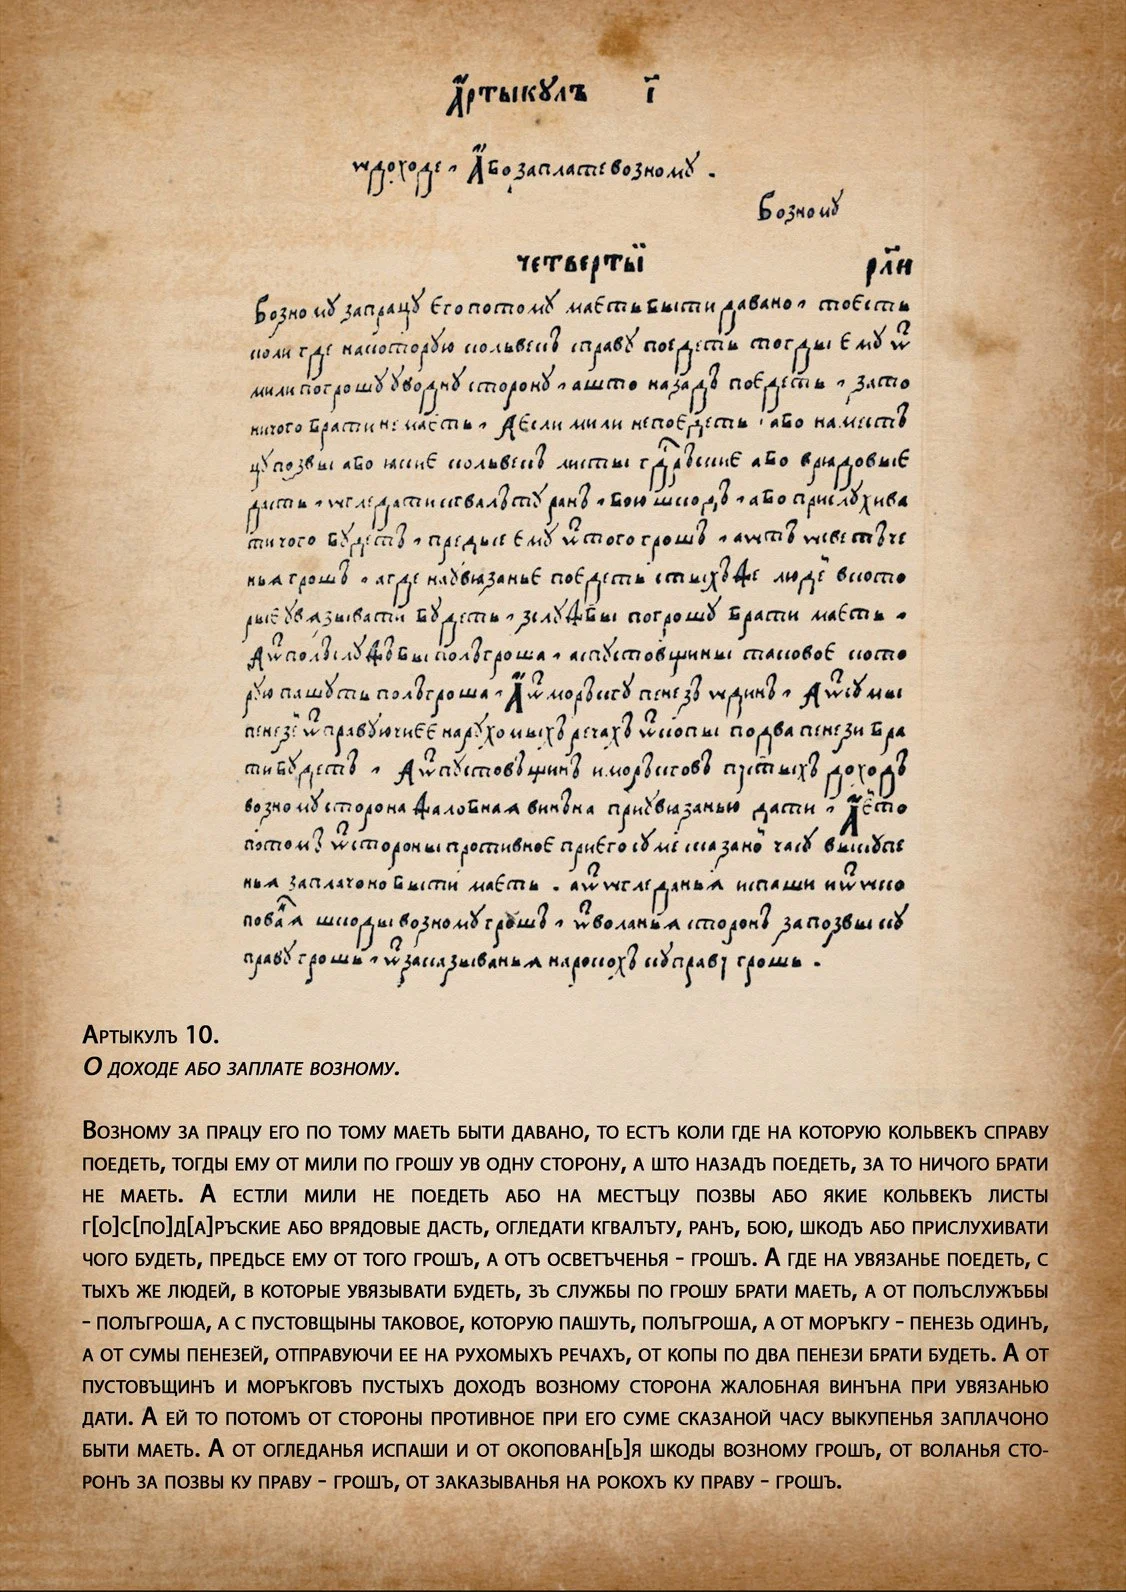 Артыкулъ ї
ѡ доходе, Або заплате возному.
Возному
четвертый
рлн
Возному за працу єго потому маєть быти давано, то єсть
коли где на которую кольвекъ справу поедеть тогды єму ѿ
мили по грошу ув одну сторону, а што назадъ поєдеть, за то
ничого брати не маєть, А єсли мили не поєдеть, або на местъ
цу позвы або якиє кольвекъ листы гдръскиє або врядовыє
дасть, ѡгледати кгвалъту ранъ, бою шкодъ, або прислухива
ти чого будеть, предьсе єму ѿ того грошъ, а ѿтъ ѡсветъче
нья грошъ, а где на увязаньє поєдеть с тыхъ же людей в кото
рыє увязывати будеть, зъ служъбы по грошу брати маєть,
А ѿ полъслужъбы полъгроша, а с пустовщины таковоє кото
рую пашуть полъгроша, А ѿ моръкгу пенезь ѡдинъ, А ѿ сумы
пенезей ѿправуючи єє на рухомыхъ речахъ ѿ копы по два пенези бра
ти будеть, А ѿ пустовъщинъ и моръкговъ пустыхъ доходъ
возному сторона жалобная винъна при увязанью дати, А ей то
потомъ ѿ стороны противноє при єго суме сказаной часу выкупе
нья заплачоно быти маєть. а ѿ ѡгледанья испаши и ѿ ѡко
пованя шкоды возному грошъ, ѿ воланья сторонъ за позвы ку
праву грошъ, ѿ заказыванья на рокохъ ку праву грошъ.
Артыкулъ 10.
О доходе або заплате возному.
Возному за працу его по тому маеть быти давано, то естъ коли где на которую кольвекъ справу
поедеть, тогды ему от мили по грошу ув одну сторону, а што назадъ поедеть, за то ничого брати
не маеть. А естли мили не поедеть або на местъцу позвы або якие кольвекъ листы
г[о]с[по]д[а]ръские або врядовые дасть, огледати кгвалъту, ранъ, бою, шкодъ або прислухивати
чого будеть, предьсе ему от того грошъ, а отъ осветъченья – грошъ. А где на увязанье поедеть, с
тыхъ же людей, в которые увязывати будеть, зъ службы по грошу брати маеть, а от полъслужъбы
– полъгроша, а с пустовщыны таковое, которую пашуть, полъгроша, а от моръкгу – пенезь одинъ,
а от сумы пенезей, отправуючи ее на рухомыхъ речахъ, от копы по два пенези брати будеть. А от
пустовъщинъ и моръкговъ пустыхъ доходъ возному сторона жалобная винъна при увязанью
дати. А ей то потомъ от стороны противное при его суме сказаной часу выкупенья заплачоно
быти маеть. А от огледанья испаши и от окопован[ь]я шкоды возному грошъ, от воланья сто-
ронъ за позвы ку праву – грошъ, от заказыванья на рокохъ ку праву – грошъ.